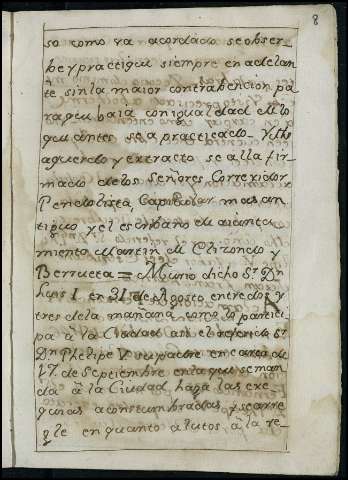 8
so como va acordado se obser_
be y practiqu siempre en adelan
te sin la maior contrabencion pa
ra que baia con igualdad ello
qu antes se a practicado_ y tho
aquerdo y extracto se alla fir_
mado de los Señores Correxidor
Penelolista, Capitular mas an
tiguo y el escribano de aiunta
miento Martin de Elizondo y
Berrueta = Murio dicho Sr. Dn
Luis I en 31 de Agosto entre dos y
tres de la mañana como lo partici
pa à la Ciudad asi el referido Sr.
Dn Phelipe V su padre en carta de
17 de Sepptiembre en la qu se man
da à la Ciudad haga las exe
quias acostumbradas y se arre_
gle en quanto a lutos à la re_